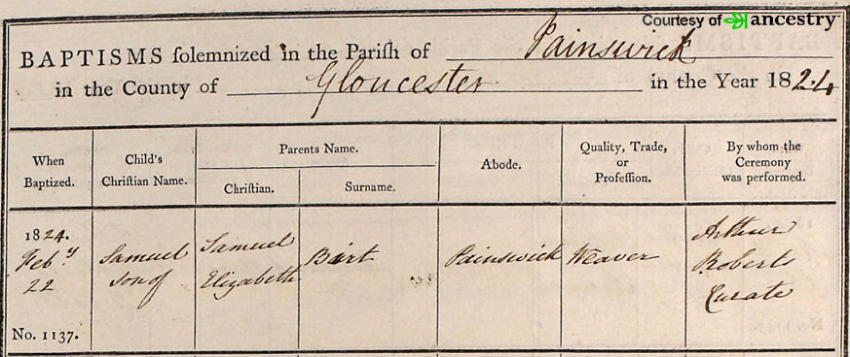 Courtesy of ancestry
BAPTISMS solemnized in the Parish of Painswick
in the County of Gloucester in the Year 1824
When
Baptized.
Child's
Christian Name.
Parents Name.
Christian.
Surname.
Abode.
Quality, Trade,
or
Profession.
By whom the
Ceremony
was performed.
1824.
Feby
22
No. 1137.
Samuel
son of
Samuel
Elizabeth
Birt
Painswick
Weaver
Arthur
Roberts
Curate